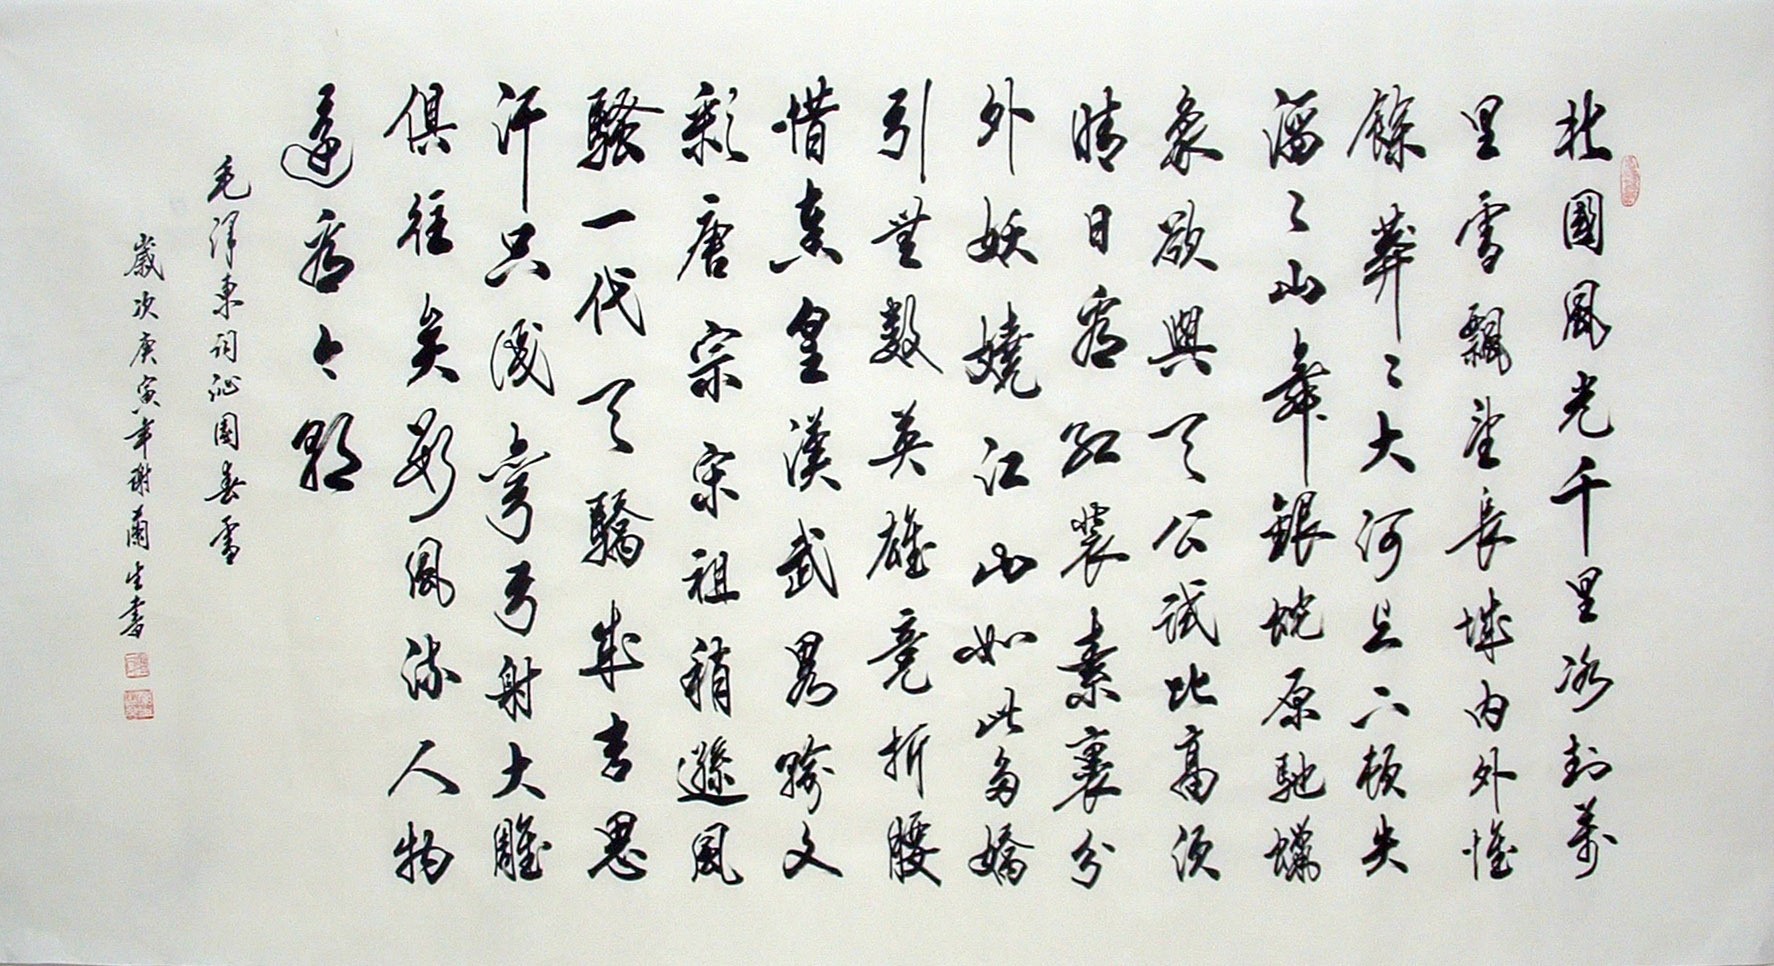 北國風光千里冰封萬
里雪飄望長城內外惟
餘莽〻大河上下頓失
滔〻山舞銀蛇原馳蠟
象欲與天公試比高須
晴日看紅裝素裹分
外妖嬈江山如此多嬌
引無數英雄競折腰
惜秦皇漢武畧輸文
彩唐宗宋祖稍遜風
騷一代天驕成吉思
汗只識彎弓射大雕
俱往矣數風流人物
還看今朝
毛澤東詞沁園春雪
歲次庚寅年謝蘭生書